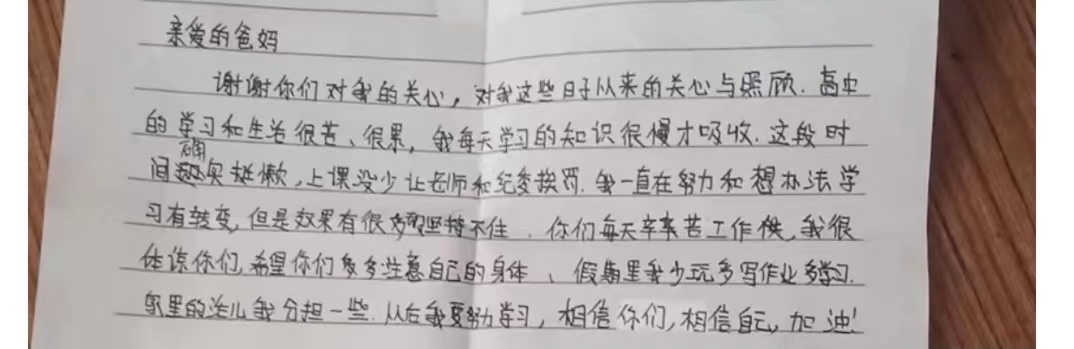 亲爱的爸妈
谢谢你们对我的关心，对我这些日子以来的关心与照顾.高中
的学习和生活很苦、很累，我每天学习的知识很慢才吸收.这段时
间确实挺懒，上课没少让老师和纪委挨罚.我一直在努力和想办法学
习有转变，但是效果有很多都坚持不住.你们每天辛苦工作供，我很
体谅你们，希望你们多多注意自己的身体、假期里我少玩多写作业多学习.
家里的活儿我分担一些.从后我要努力学习，相信你们，相信自己，加油！